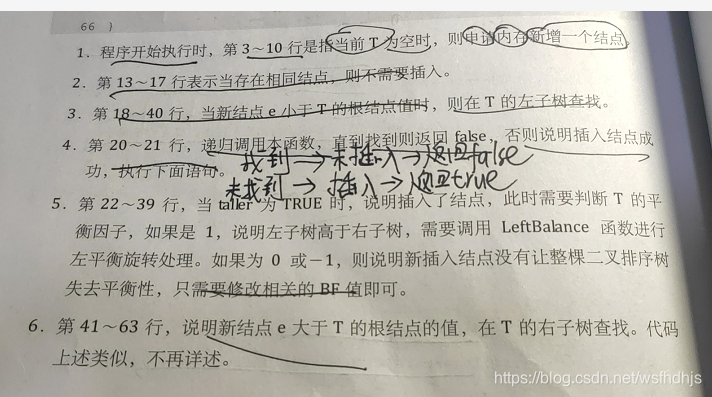 66 }
1. 程序开始执行时，第 3~10 行是指当前 T 为空时，则申请内存新增一个结点。
2. 第 13~17 行表示当存在相同结点，则不需要插入。
3. 第 18~40 行，当新结点 e 小于 T 的根结点值时，则在 T 的左子树查找。
4. 第 20~21 行，递归调用本函数，直到找到则返回 false，否则说明插入结点成
功，执行下面语句。
找到→未插入→返回false
未找到→插入→返回true
5. 第 22~39 行，当 taller 为 TRUE 时，说明插入了结点，此时需要判断 T 的平
衡因子，如果是 1，说明左子树高于右子树，需要调用 LeftBalance 函数进行
左平衡旋转处理。如果为 0 或−1，则说明新插入结点没有让整棵二叉排序树
失去平衡性，只需要修改相关的 BF 值即可。
6. 第 41~63 行，说明新结点 e 大于 T 的根结点的值，在 T 的右子树查找。代码
上述类似，不再详述。
https://blog.csdn.net/wsfhdhjs